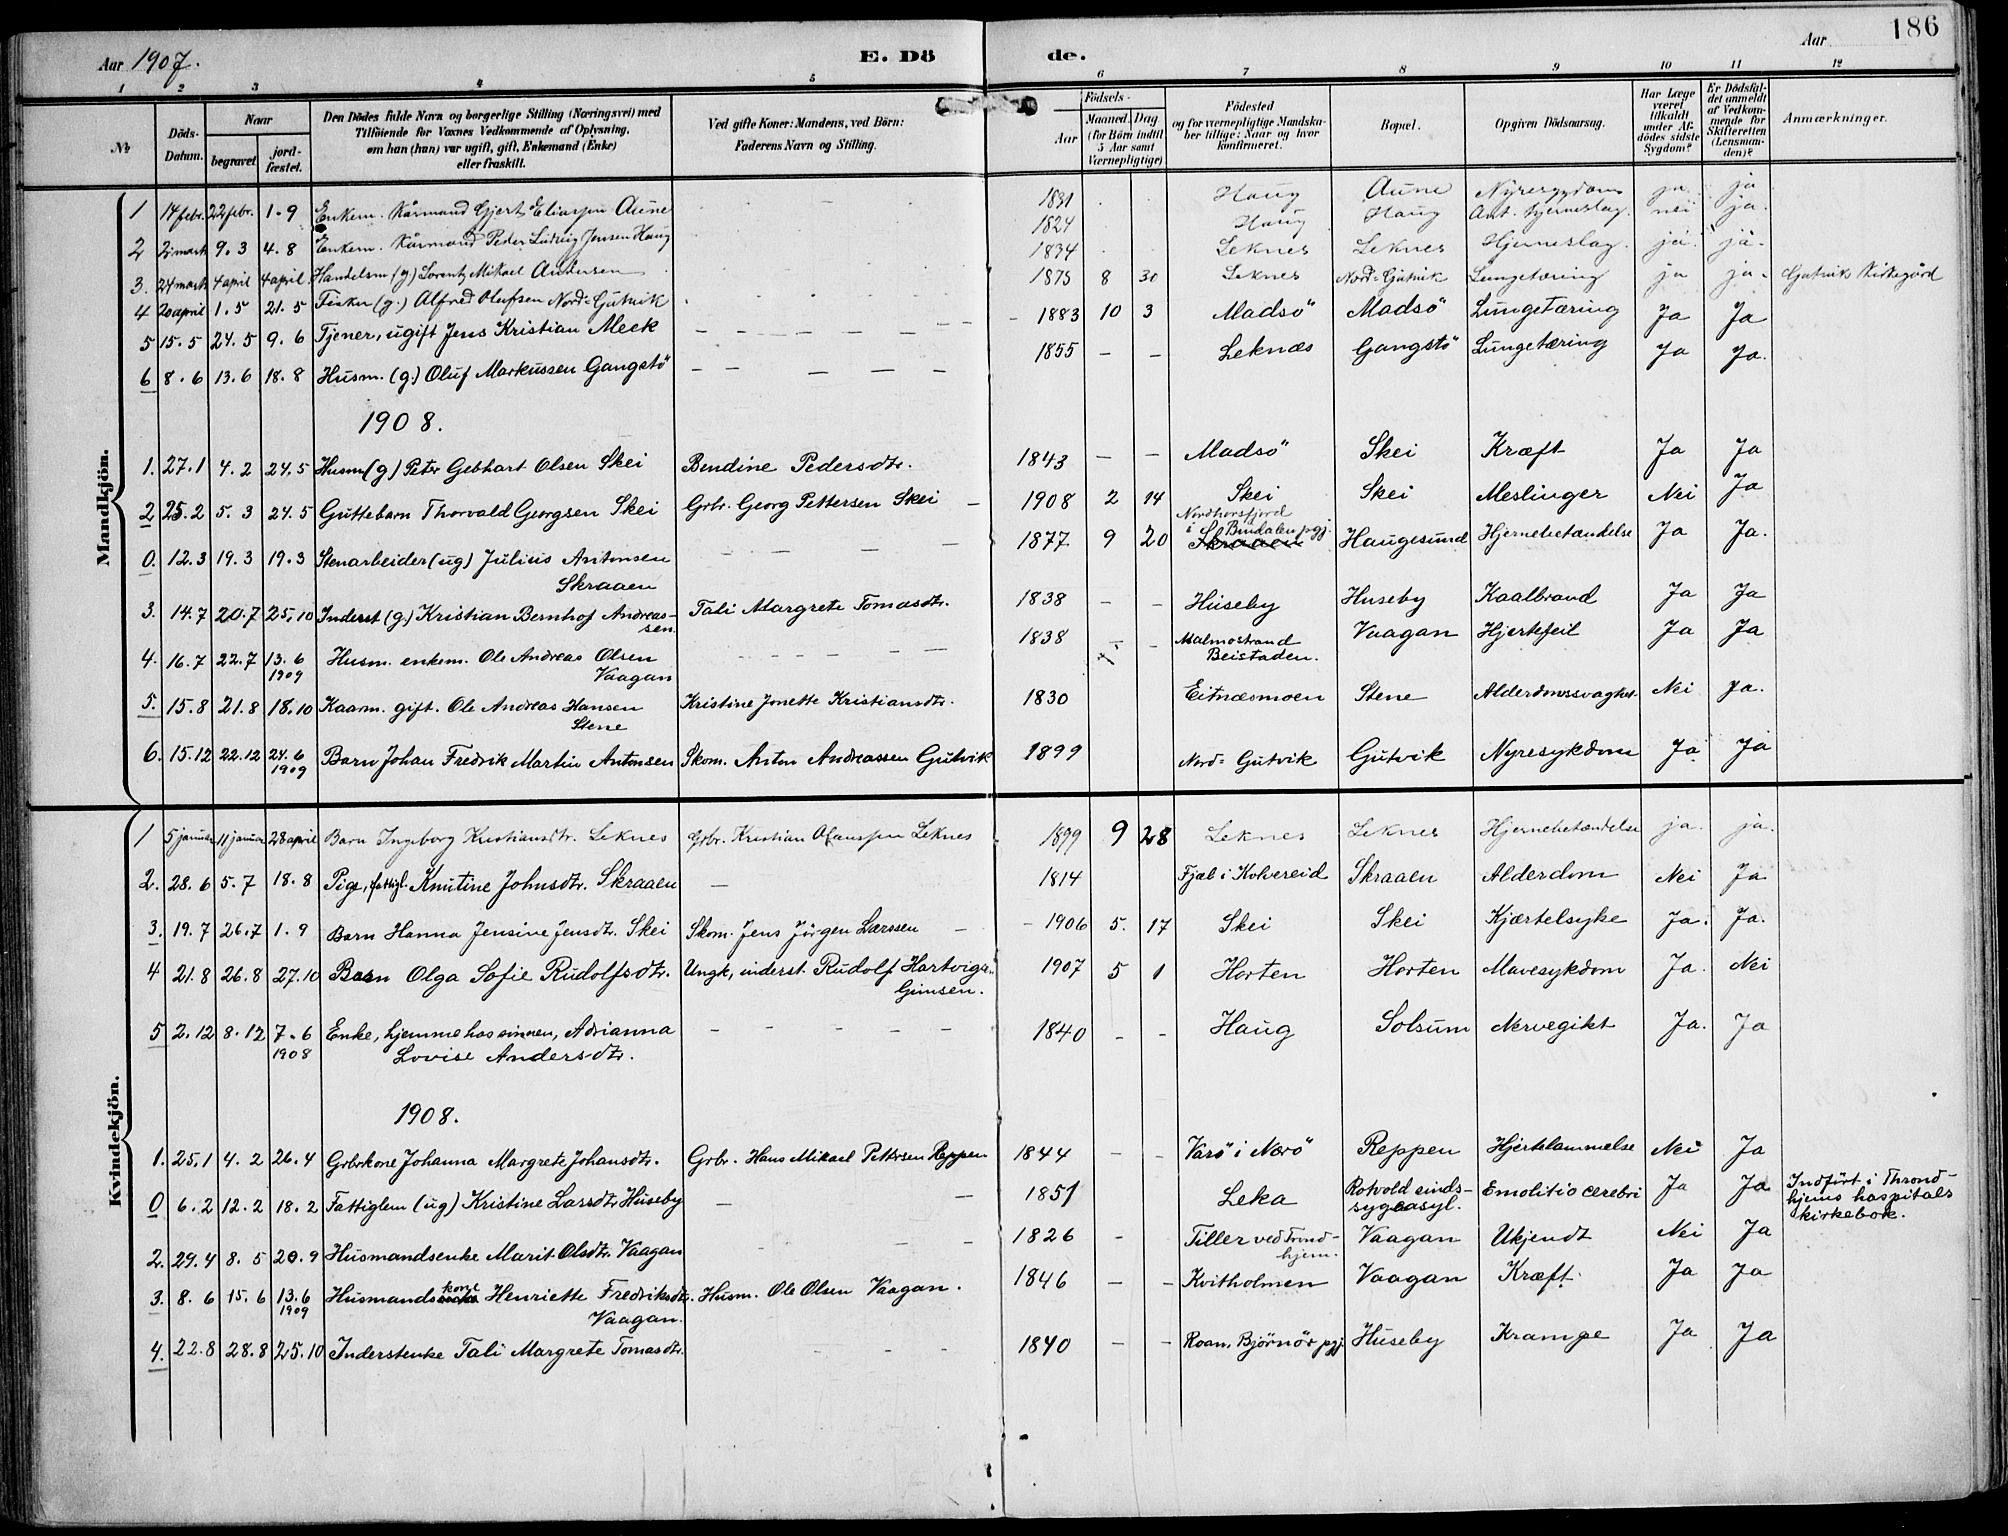 186
Aar 1907.
E. Dö
de.
Aar
1 2 3 4 5 6 7 8 9 10 11 12
№
Döds-Datum.
Naar
begravet
jord-fæstet.
Den Dödes fulde Navn og borgerlige Stilling (Næringsvei) med
Tilföiende for Voxnes Vedkommende af Oplysning,
om han (hun) var ugift, gift, Enkemand (Enke)
eller fraskilt.
Ved gifte Koner: Mandens, ved Börn:
Faderens Navn og Stilling.
Födsels-
Aar
Maaned, Dag
(for Börn indtil
5 Aar samt
Værnepligtige)
Födested
og for værnepligtige Mandska-
ber tillige: Naar og hvor
konfirmeret.
Bopæl.
Opgiven Dödsaarsag.
Har Læge
været
tilkaldt
under Af-
dödes sidste
Sygdom?
Er Dödsfal-
det anmeldt
af Vedkom-
mende for
Skifteretten
(Lensman-
den)?
Anmærkninger.
Mandkjön.
1 14 febr. 22 febr. 1-9 Enkem. Kårmand Gjert Eliassen Aune 1831 Haug Aune Nyresygdom ja ja
2 2 mark 9.3 4.8 Enkem. Kårmand Peder Ludvig Jensen Haug 1824 Haug Haug Ant. hjerneslag. nei ja.
3. 24 mark 4 april 4 april. Handelsm (g) Lorentz Mikael Andersen 1834 Leknes Leknes Hjerneslag. ja. ja.
4 20 april 1.5 21.5 Fisker (g.) Alfred Olufsen Nord-Gutvik 1875 8 30 Leknes Nord-Gutvik Lungetæring ja ja. Gutvik Kirkegård
5 15.5 24.5 9.6 Tjener, ugift Jens Kristian Meek 1883 10 3 Madsö Madsö Lungetæring Ja Ja
6 8.6 13.6 18.8 Husm. (g.) Oluf Markussen Gangstö 1855 Leknæs Gangstö Lungetæring Ja Ja.
1908.
1. 27.1 4.2 24.5 Husm (g) Peter Gebhart Olsen Skei Bendine Pedersdtr. 1843 Madsö Skei Kræft Ja Ja
2 25.2 5.3 24.5 Guttebarn Thorvald Georgsen Skei Grbr. Georg Pettersen Skei 1908 2 14 Skei Skei Meslinger Nei Ja
0. 12.3 19.3 19.3 Stenarbeider (ug) Julius Antonsen
Skraaen 1877 9 20 Nordhorsfjord
i Bindalen pgj.
Skraaen Haugesund Hjernebetændelse Ja Ja.
3. 14.7 20.7 25.10 Inderst (g.) Kristian Bernhof Andreas-
sen. Tali Margrete Tomasdtr. 1838 Huseby Huseby Kaalbrand Ja Ja
4. 16.7 22.7 13.6
1909 Husm. enkem. Ole Andreas Olsen
Vaagan 1838 Malmostrand
Beistaden. Vaagan Hjertefeil Ja Ja
5. 15.8 21.8 18.10 Kaarm. gift. Ole Andreas Hansen
Stene Kristine Jonette Kristiansdtr. 1830 Eitnæsmoen Stene Alderdomssvaghet Nei Ja.
6. 15.12 22.12 24.6
1909 Barn Johan Fredrik Martin Antonsen Skom. Anton Andreassen Gutvik 1899 Nord-Gutvik Gutvik Nyresykdom Ja Ja
Kvindekjön.
1 5 januar 11 januar 28 april Barn Ingeborg Kristiansdtr. Leknes Grbr. Kristian Olaussen Leknes 1899 9 28 Leknes Leknes Hjernebetændelse ja. ja.
2. 28.6 5.7 18.8 Pige, fattigl. Knutine Johnsdtr. Skraaen 1814 Fjæl i Kolvereid Skraaen Alderdom Nei Ja
3. 19.7 26.7 1.9 Barn Hanna Jensine Jensdtr. Skei Skom. Jens Jörgen Larssen 1906 5. 17 Skei Skei Kjærtelsyke Ja. Ja.
4 21.8 26.8 27.10 Barn Olga Sofie Rudolfsdtr. Ungk, inderst. Rudolf Hartvigs-
Gimsen. 1907 5 1 Horten Horten Mavesykdom Ja. Nei
5 2.12 8.12 7.6
1908 Enke, hjemme hos sönnen, Adrianna
Lovise Andersdtr. 1840 Haug Solsum Nervegikt Ja. Ja
1908.
1. 25.1 4.2 26.4 Grbrkone Johanna Margrete Johansdtr. Grbr. Hans Mikael Pettersen Reppen 1844 Varö i Nærö Reppen Hjertelammelse Nei Ja
0 6.2 12.2 18.2 Fattiglem (ug) Kristine Larsdtr Huseby 1851 Leka Rotvold sinds-
sygeasyl. Emolitio cerebri Ja Ja Indfört i Thrond-
hjems hospitals
kirkebok.
2. 29.4 8.5 20.9 Husmandsenke Marit Olsdtr. Vaagan 1826 Tiller ved Trond-
hjem. Vaagan Ukjendt Nei Ja
3. 8.6 15.6 13.6
1909 Husmandskone Henriette Fredriksdtr.
Vaagan. Husm. Ole Olsen Vaagan. 1846 Kvitholmen Vaagan Kræft Ja Ja
4. 22.8 28.8 25.10 Inderstenke Tali Margrete Tomasdtr. 1840 Roan, Björnör pgj. Huseby Krampe Ja Ja